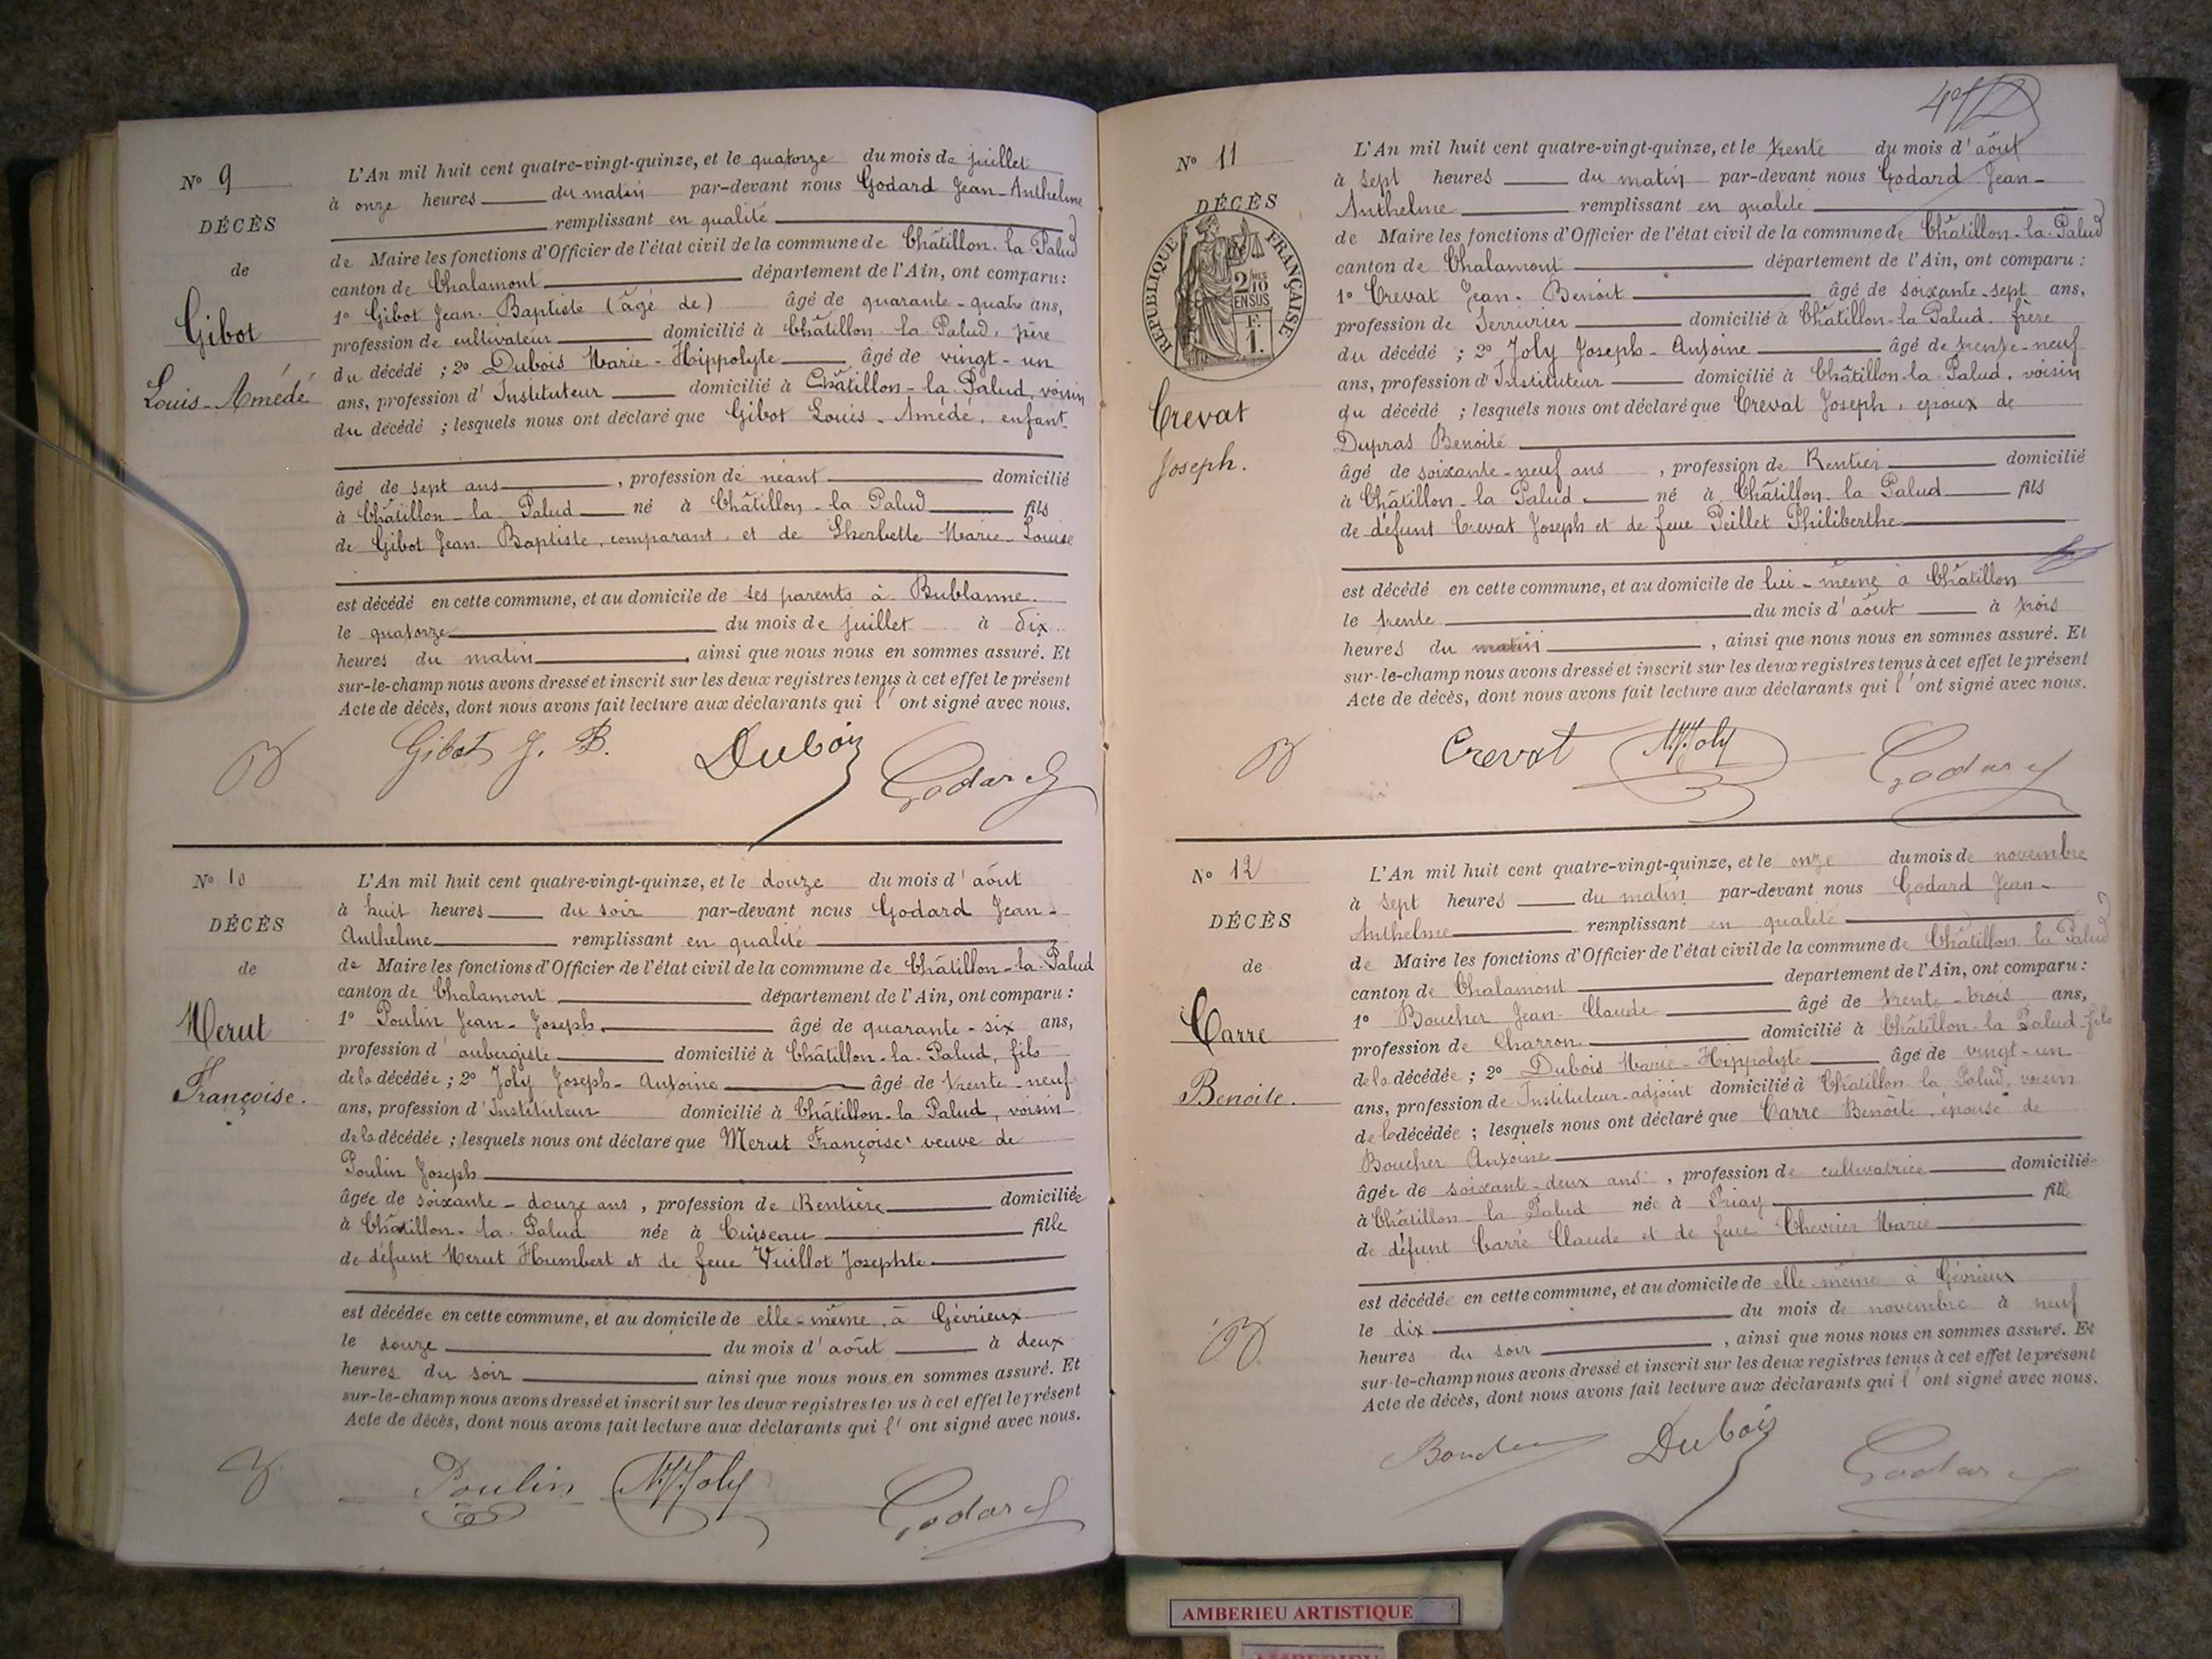 N° 9
DÉCÈS
de
Gibot
Louis-Amédé
L'An mil huit cent quatre-vingt-quinze, et le quatorze du mois de juillet
à onze heures du matin par-devant nous Godard Jean-Anthelme
remplissant en qualité
de Maire les fonctions d'Officier de l'état civil de la commune de Châtillon-la-Palud
canton de Chalamont département de l'Ain, ont comparu :
1° Gibot Jean-Baptiste (âgé de) âgé de quarante-quatre ans,
profession de cultivateur domicilié à Châtillon-la-Palud, père
du décédé ; 2° Dubois Marie-Hippolyte âgé de vingt-un
ans, profession d'Instituteur domicilié à Châtillon-la-Palud, voisin
du décédé ; lesquels nous ont déclaré que Gibot Louis-Amédé, enfant
âgé de sept ans, profession de néant domicilié
à Châtillon-la-Palud né à Châtillon-la-Palud fils
de Gibot Jean-Baptiste, comparant, et de Sherbette Marie-Louise
est décédé en cette commune, et au domicile de ses parents à Bublanne
le quatorze du mois de juillet à dix
heures du matin, ainsi que nous nous en sommes assuré. Et
sur-le-champ nous avons dressé et inscrit sur les deux registres tenus à cet effet le présent
Acte de décès, dont nous avons fait lecture aux déclarants qui l'ont signé avec nous.
Gibot J. B. Dubois Godard
N° 10
DÉCÈS
de
Merut
Françoise.
L'An mil huit cent quatre-vingt-quinze, et le douze du mois d'août
à huit heures du soir par-devant nous Godard Jean-
Anthelme remplissant en qualité
de Maire les fonctions d'Officier de l'état civil de la commune de Châtillon-la-Palud
canton de Chalamont département de l'Ain, ont comparu :
1° Poulin Jean-Joseph âgé de quarante-six ans,
profession d'aubergiste domicilié à Châtillon-la-Palud, fils
de la décédée ; 2° Joly Joseph-Antoine âgé de trente-neuf
ans, profession d'Instituteur domicilié à Châtillon-la-Palud, voisin
de la décédée ; lesquels nous ont déclaré que Merut Françoise, veuve de
Poulin Joseph
âgée de soixante-douze ans, profession de Rentière domiciliée
à Châtillon-la-Palud née à Cuiseau fille
de défunt Merut Humbert et de feue Vuillot Josephte
est décédée en cette commune, et au domicile de elle-même, à Gévrieux
le douze du mois d'août à deux
heures du soir ainsi que nous nous en sommes assuré. Et
sur-le-champ nous avons dressé et inscrit sur les deux registres tenus à cet effet le présent
Acte de décès, dont nous avons fait lecture aux déclarants qui l'ont signé avec nous.
Poulin Joly Godard
N° 11
DÉCÈS
RÉPUBLIQUE FRANÇAISE
2/10 MES
EN SUS
F.
1.
Crevat
Joseph.
L'An mil huit cent quatre-vingt-quinze, et le trente du mois d'août
à sept heures du matin par-devant nous Godard Jean-
Anthelme remplissant en qualité
de Maire les fonctions d'Officier de l'état civil de la commune de Châtillon-la-Palud
canton de Chalamont département de l'Ain, ont comparu :
1° Crevat Jean-Benoit âgé de soixante-sept ans,
profession de Serrurier domicilié à Châtillon-la-Palud, frère
du décédé ; 2° Joly Joseph-Antoine âgé de trente-neuf
ans, profession d'Instituteur domicilié à Châtillon-la-Palud, voisin
du décédé ; lesquels nous ont déclaré que Crevat Joseph, époux de
Dupras Benoite
âgé de soixante-neuf ans, profession de Rentier domicilié
à Châtillon-la-Palud né à Châtillon-la-Palud fils
de défunt Crevat Joseph et de feue Peillet Philiberthe
est décédé en cette commune, et au domicile de lui-même à Châtillon
le trente du mois d'août à trois
heures du matin, ainsi que nous nous en sommes assuré. Et
sur-le-champ nous avons dressé et inscrit sur les deux registres tenus à cet effet le présent
Acte de décès, dont nous avons fait lecture aux déclarants qui l'ont signé avec nous.
Crevat Joly Godard
N° 12
DÉCÈS
de
Carre
Benoite.
L'An mil huit cent quatre-vingt-quinze, et le onze du mois de novembre
à sept heures du matin par-devant nous Godard Jean-
Anthelme remplissant en qualité
de Maire les fonctions d'Officier de l'état civil de la commune de Châtillon-la-Palud
canton de Chalamont département de l'Ain, ont comparu :
1° Boucher Jean-Claude âgé de trente-trois ans,
profession de Charron domicilié à Châtillon-la-Palud fils
de la décédée ; 2° Dubois Marie-Hippolyte âgé de vingt-un
ans, profession de Instituteur-adjoint domicilié à Châtillon-la-Palud, voisin
de la décédée ; lesquels nous ont déclaré que Carre Benoite, épouse de
Boucher Antoine
âgée de soixante-deux ans, profession de cultivatrice domicilié
à Châtillon-la-Palud née à Priay fille
de défunt Carré Claude et de feue Chevrier Marie
est décédée en cette commune, et au domicile de elle-même à Gévrieux
le dix du mois de novembre à neuf
heures du soir, ainsi que nous nous en sommes assuré. Et
sur-le-champ nous avons dressé et inscrit sur les deux registres tenus à cet effet le présent
Acte de décès, dont nous avons fait lecture aux déclarants qui l'ont signé avec nous.
Boucher Dubois Godard
AMBERIEU ARTISTIQUE
AMBERIEU